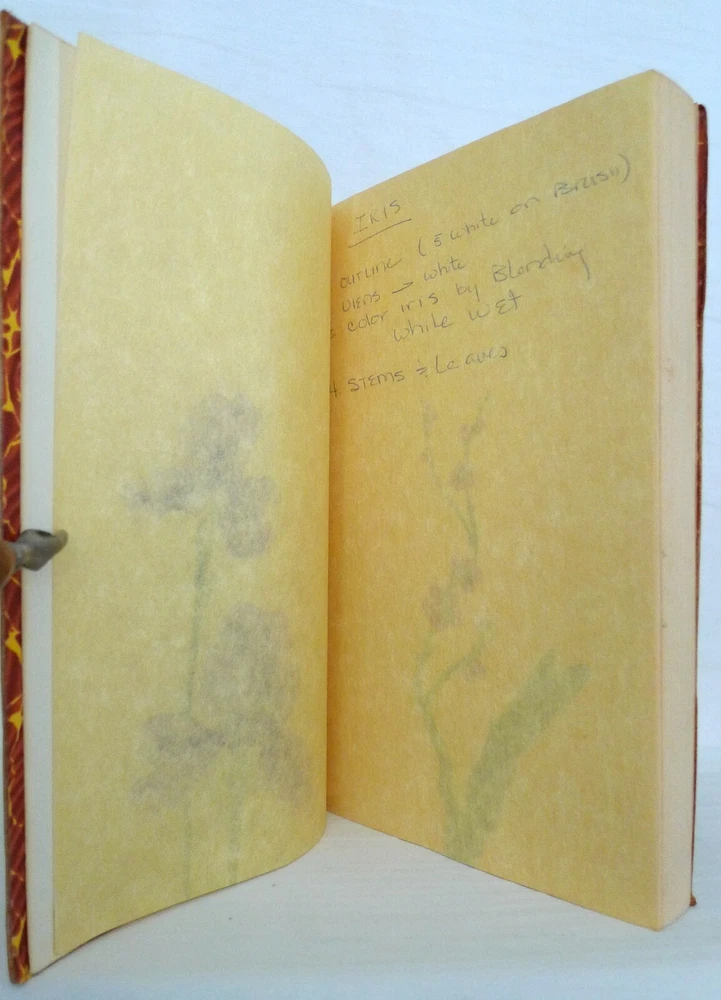 IRIS
OUTLINE (c̄ white on Brush)
VIENS → white
color iris by Blending
while WET
4. STEMS & Leaves